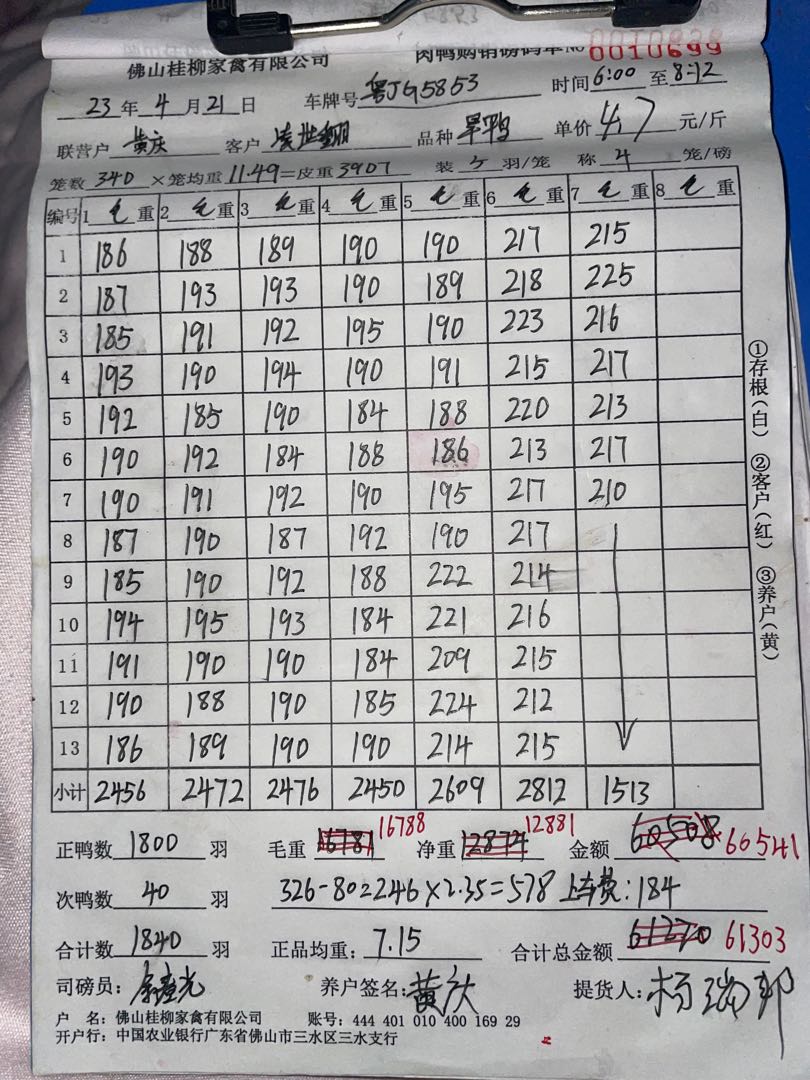 佛山桂柳家禽有限公司 肉鸭购销磅码单 No 0010699
23 年 4 月 21 日 车牌号 粤JG5853 时间 6:00 至 8:12
联营户 黄庆 客户 品种 旱鸭 单价 4.7 元/斤
笼数 340 ×笼均重 11.49=皮重 3907 装 5 羽/笼 称 4 笼/磅
编号 1 毛 重 2 毛 重 3 毛 重 4 毛 重 5 毛 重 6 毛 重 7 毛 重 8 毛 重
1 186 188 189 190 190 217 215
2 187 193 193 190 189 218 225
3 185 191 192 195 190 223 216
4 193 190 194 190 191 215 217
5 192 185 190 184 188 220 213
6 190 192 184 188 186 213 217
7 190 191 192 190 195 217 210
8 187 190 187 192 190 217
9 185 190 192 188 222 214
10 194 195 193 184 221 216
11 191 190 190 184 209 215
12 190 188 190 185 224 212
13 186 189 190 190 214 215
小计 2456 2472 2476 2450 2609 2812 1513
①存根(白) ②客户(红) ③养户(黄)
正鸭数 1800 羽 毛重 16781 16788 净重 12874 12881 金额 60508 60541
次鸭数 40 羽 326-80=246×2.35=578 上车费:184
合计数 1840 羽 正品均重: 7.15 合计总金额 61270 61303
司磅员: 养户签名: 黄庆 提货人: 杨瑞邦
户 名: 佛山桂柳家禽有限公司 账号: 444 401 010 400 169 29
开户行: 中国农业银行广东省佛山市三水区三水支行